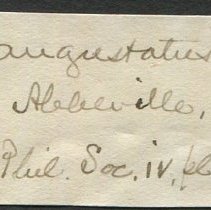 angustatus
Abbeville,
Phil. Soc. iv, pl